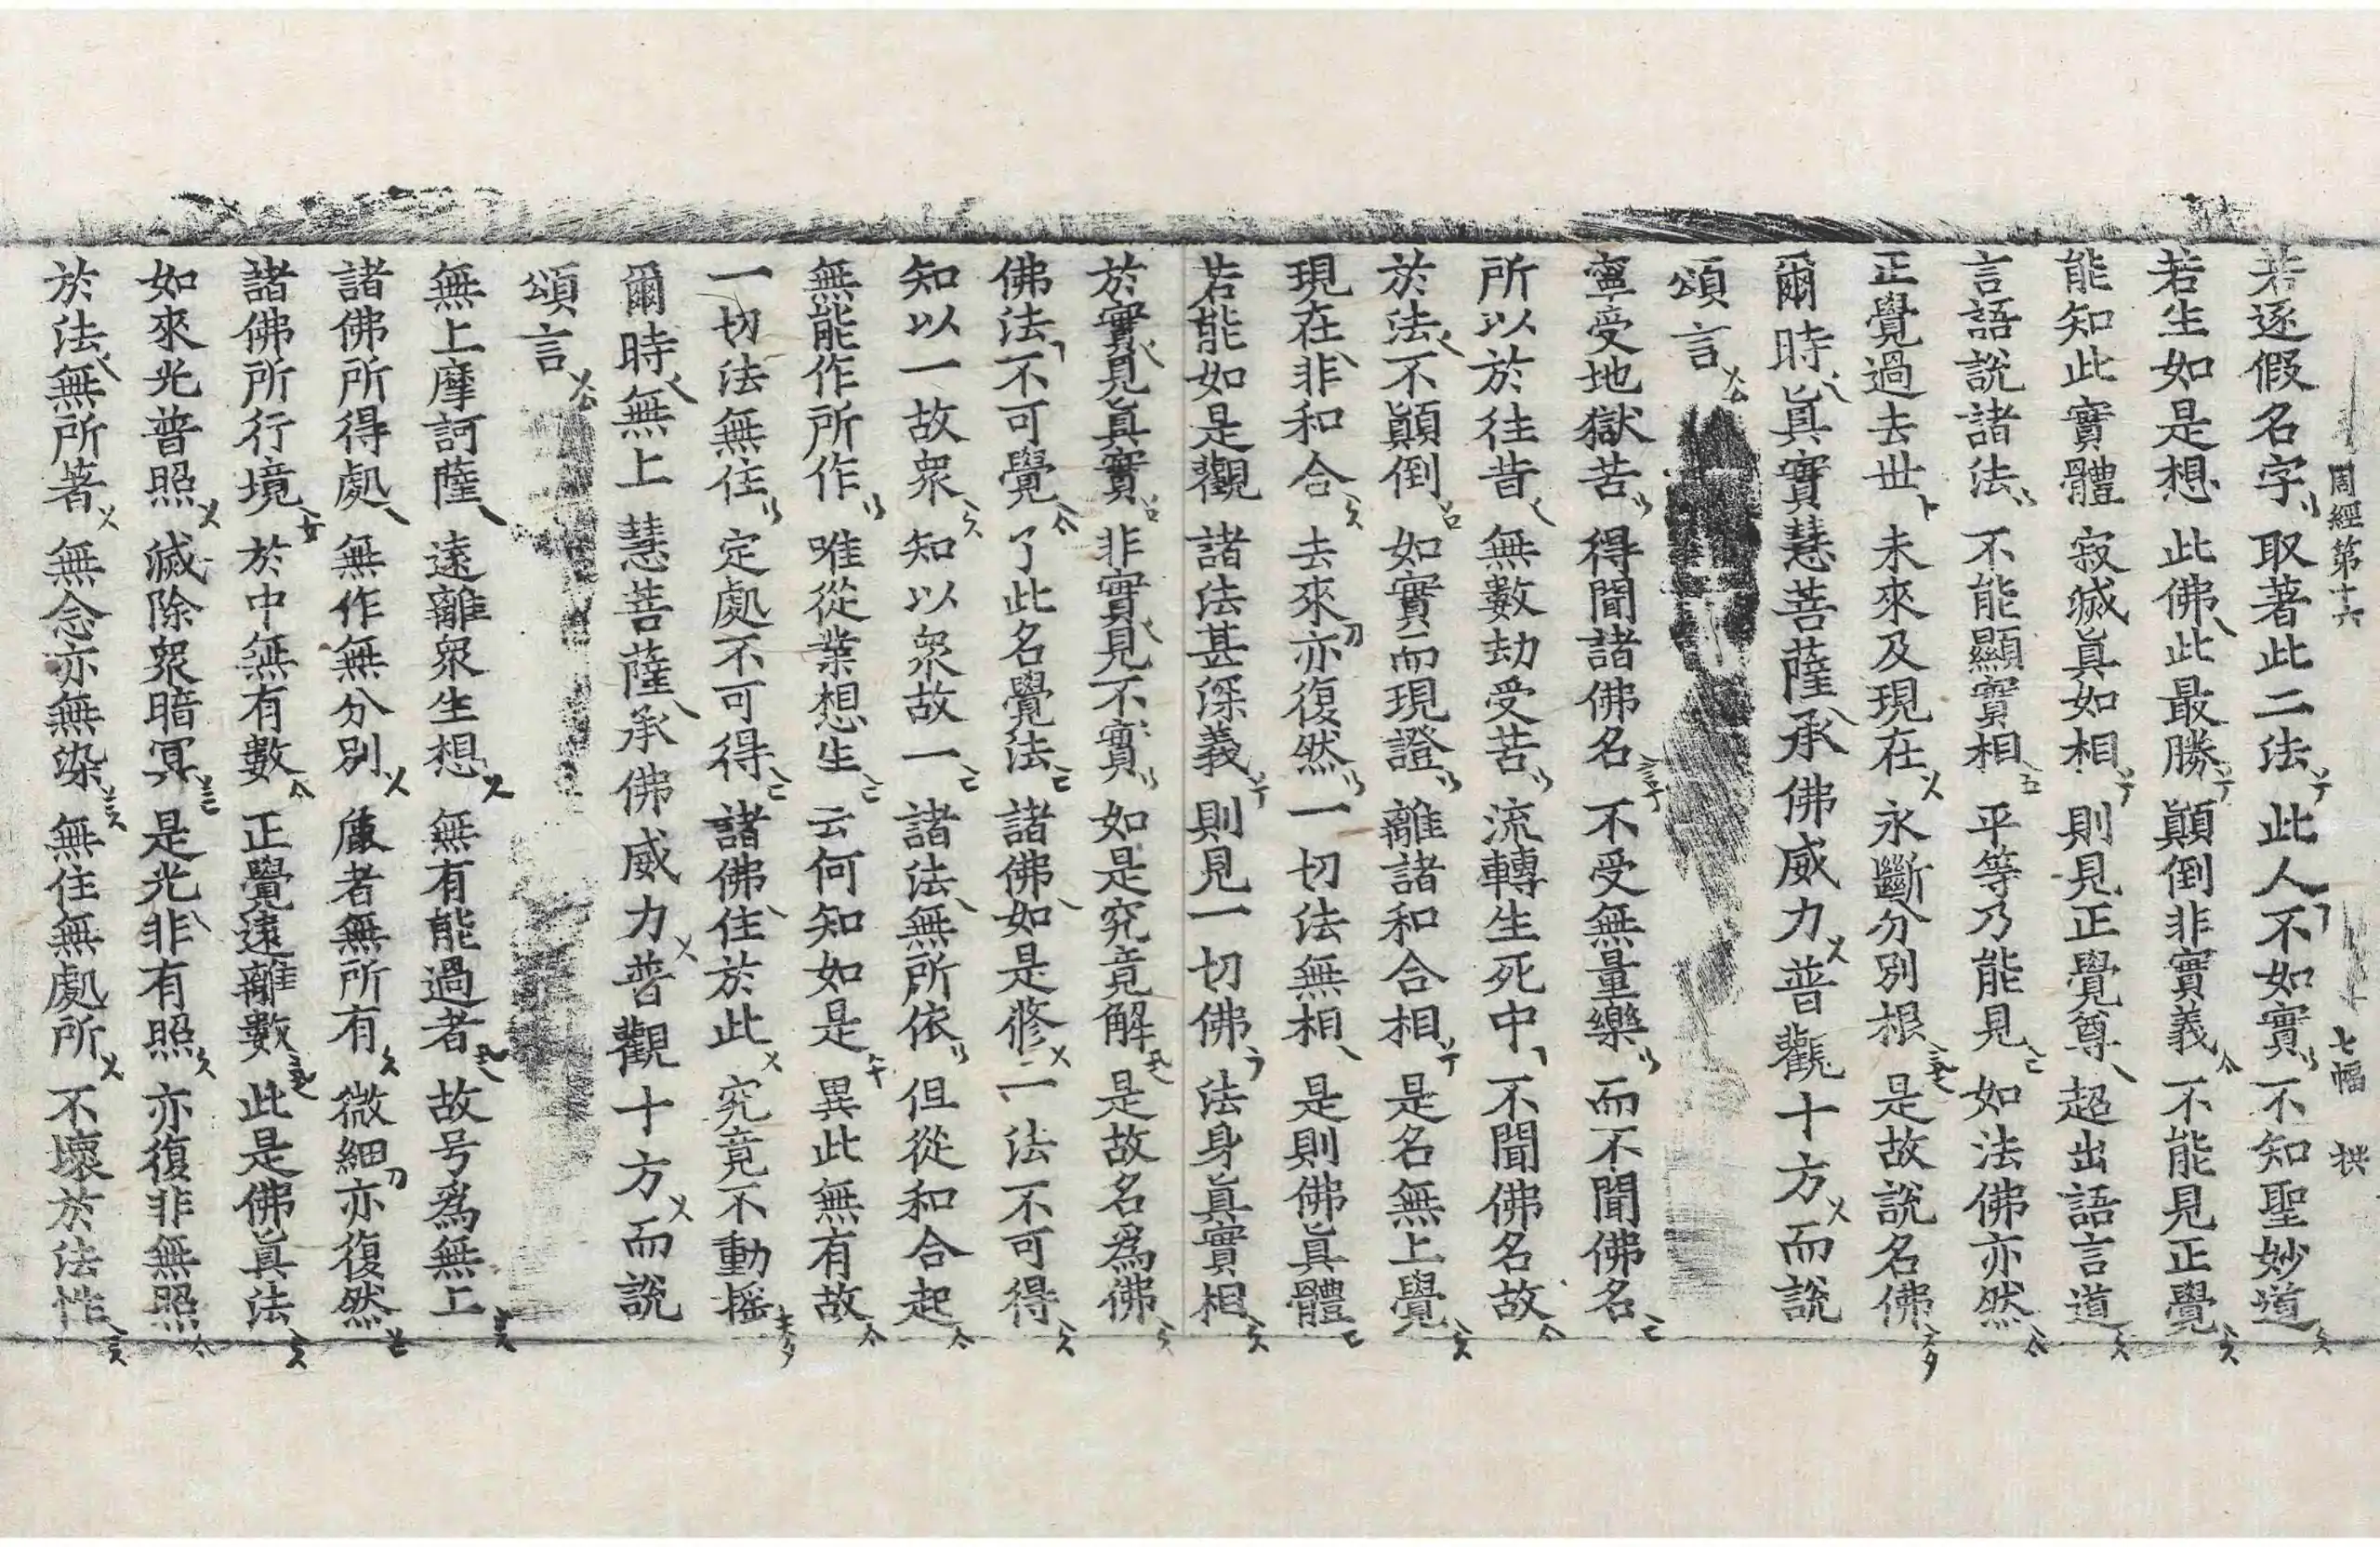 周經第十六 七幅 拱
若逐假名字 取著此二法 此人不如實 不知聖妙道
若生如是想 此佛此最勝 顚倒非實義 不能見正覺
能知此實體 寂滅眞如相 則見正覺尊 超出語言道
言語說諸法 不能顯實相 平等乃能見 如法佛亦然
正覺過去世 未來及現在 永斷分別根 是故說名佛
爾時眞實慧菩薩承佛威力普觀十方而說
頌言
寧受地獄苦 得聞諸佛名 不受無量樂 而不聞佛名
所以於往昔 無數劫受苦 流轉生死中 不聞佛名故
於法不顚倒 如實而現證 離諸和合相 是名無上覺
現在非和合 去來亦復然 一切法無相 是則佛眞體
若能如是觀 諸法甚深義 則見一切佛 法身眞實相
於實見眞實 非實見不實 如是究竟解 是故名爲佛
佛法不可覺 了此名覺法 諸佛如是修 一法不可得
知以一故衆 知以衆故一 諸法無所依 但從和合起
無能作所作 唯從業想生 云何知如是 異此無有故
一切法無住 定處不可得 諸佛住於此 究竟不動搖
爾時無上慧菩薩承佛威力普觀十方而說
頌言
無上摩訶薩 遠離衆生想 無有能過者 故号爲無上
諸佛所得處 無作無分別 麁者無所有 微細亦復然
諸佛所行境 於中無有數 正覺遠離數 此是佛眞法
如來光普照 滅除衆暗冥 是光非有照 亦復非無照
於法無所著 無念亦無染 無住無處所 不壞於法性